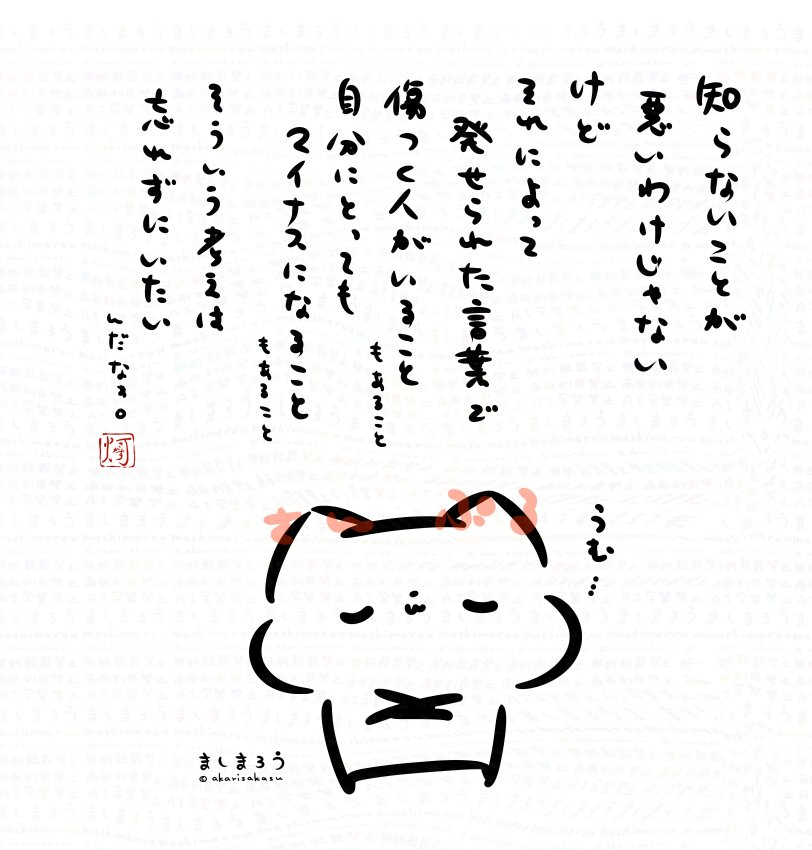 知らないことが
悪いわけじゃない
けど
それによって
発せられた言葉で
傷つく人がいること
もあること
自分にとっても
マイナスになること
もあること
そういう考えは
忘れずにいたい
んだなぁ。
うむ…
さんぷる
ましまろう
© akarisakasu